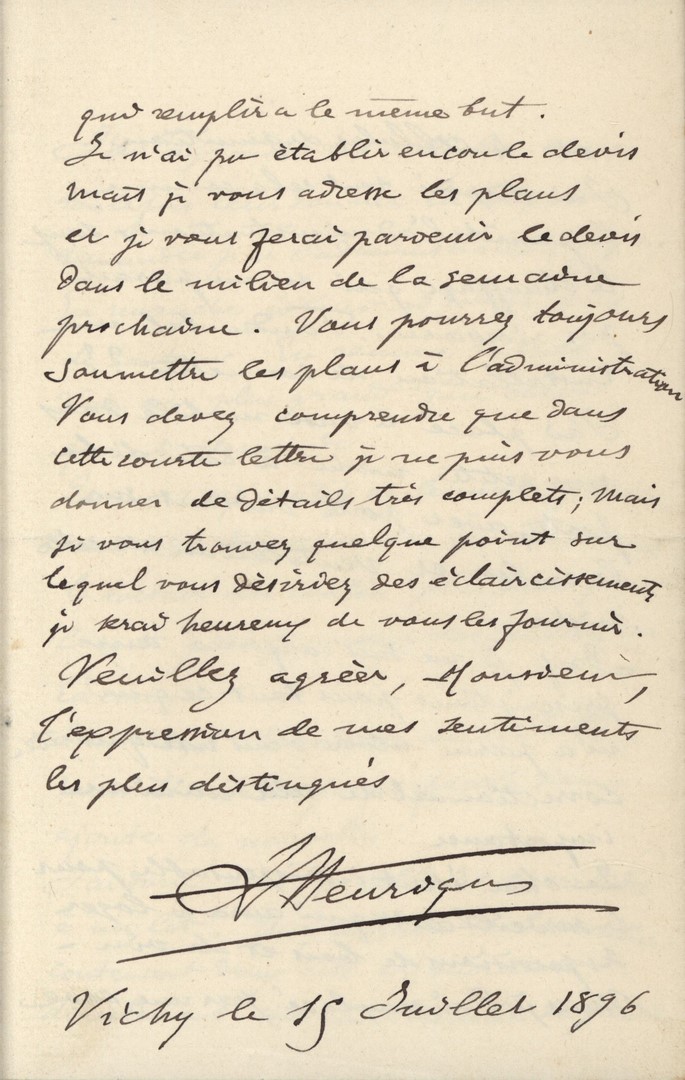 qui remplira le même but.
Je n'ai pu établir encore le devis
mais je vous adresse les plans
et je vous ferai parvenir le devis
dans le milieu de la semaine
prochaine. Vous pourrez toujours
soumettre les plans à l'administration
Vous devez comprendre que dans
cette courte lettre je ne puis vous
donner de détails très complets; mais
si vous trouvez quelque point sur
lequel vous désiriez des éclaircissements
je serai heureux de vous les fournir.
Veuillez agréer, Monsieur,
l'expression de mes sentiments
les plus distingués
Vichy le 15 Juillet 1896